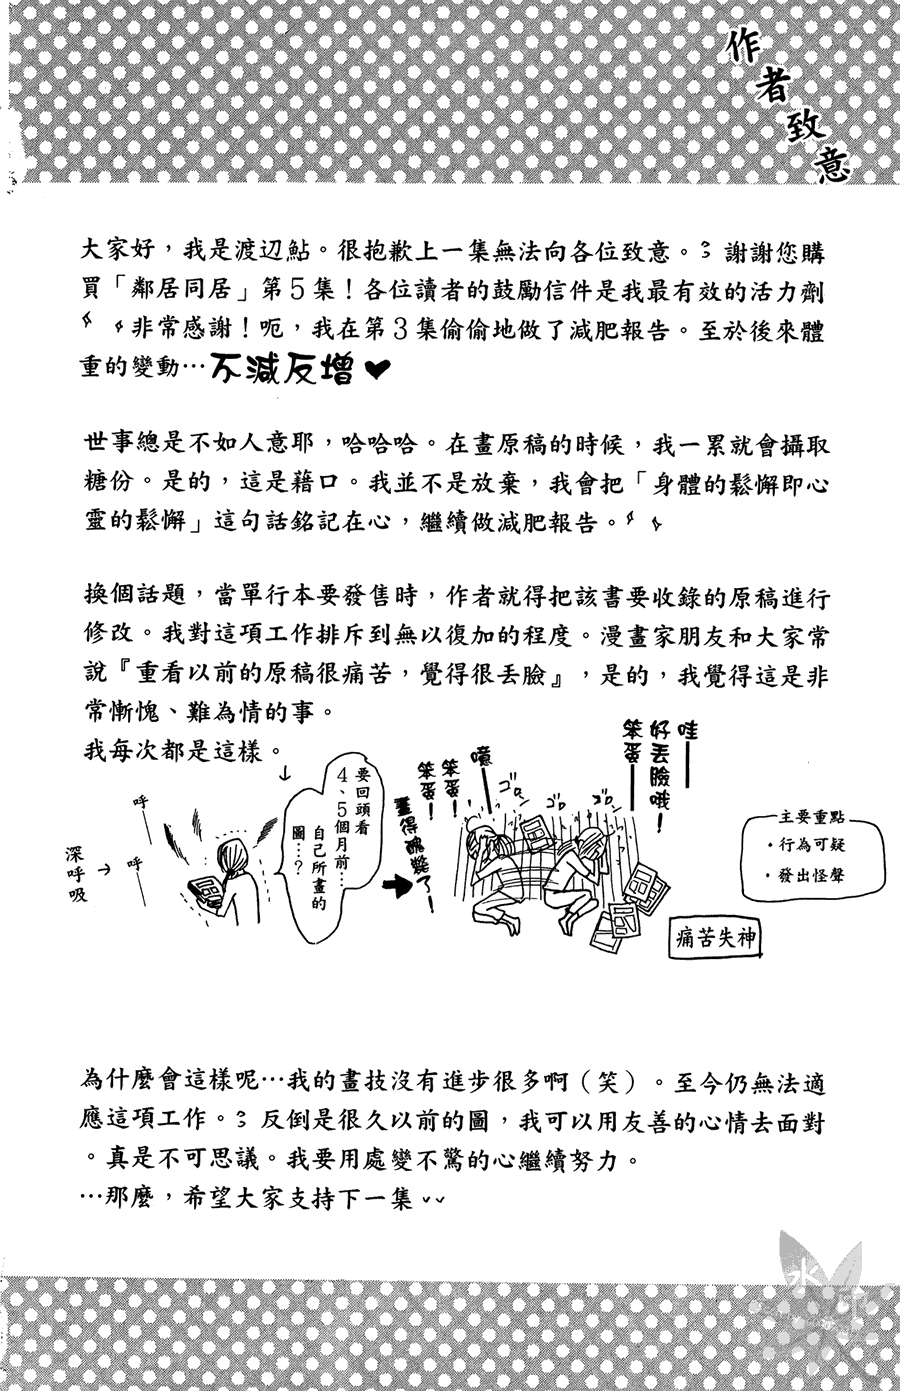 作者致意
大家好，我是渡辺鮎。很抱歉上一集無法向各位致意。謝謝您購
買「鄰居同居」第５集！各位讀者的鼓勵信件是我最有效的活力劑
非常感謝！呃，我在第３集偷偷地做了減肥報告。至於後來體
重的變動…不減反增♥
世事總是不如人意耶，哈哈哈。在畫原稿的時候，我一累就會攝取
糖份。是的，這是藉口。我並不是放棄，我會把「身體的鬆懈即心
靈的鬆懈」這句話銘記在心，繼續做減肥報告。
換個話題，當單行本要發售時，作者就得把該書要收錄的原稿進行
修改。我對這項工作排斥到無以復加的程度。漫畫家朋友和大家常
說『重看以前的原稿很痛苦，覺得很丟臉』，是的，我覺得這是非
常慚愧、難為情的事。
我每次都是這樣。
↓
深呼吸
→
呼｜
呼｜
要回頭看
4、5個月前…
自己所畫的
圖…？
畫得醜斃了！
笨蛋！
笨蛋！
噫｜
ゴロ
ゴロ
ゴロ
笨蛋｜
好丟臉哦！
哇｜
痛苦失神
主要重點
・行為可疑
・發出怪聲
為什麼會這樣呢…我的畫技沒有進步很多啊（笑）。至今仍無法適
應這項工作。反倒是很久以前的圖，我可以用友善的心情去面對
。真是不可思議。我要用處變不驚的心繼續努力。
…那麼，希望大家支持下一集
水